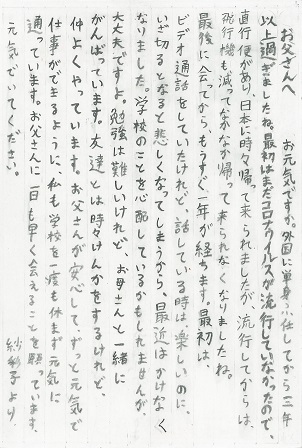 お父さんへ
お元気ですか。外国に単身赴任してから三年
以上過ぎましたね。最初はまだコロナウイルスが流行していなかったので、
直行便があり、日本に時々帰って来られましたが、流行してからは、
飛行機も減ってなかなか帰って来られなくなりましたね。
最後に会ってからもうすぐ一年が経ちます。最初は
ビデオ通話をしていたけれど、話している時は楽しいのに、
いざ切るとなると悲しくなってしまうから、最近はかけなく
なりました。学校のことを心配しているかもしれませんが
大丈夫ですよ。勉強は難しいけれど、お母さんと一緒に
がんばっています。友達とは時々けんかをするけれど、
仲よくやっています。お父さんが安心して、ずっと元気で
仕事ができるように、私も学校を一度も休まず元気に
通っています。お父さんに一日も早く会えることを願っています。
元気でいてください。
紗彩子より